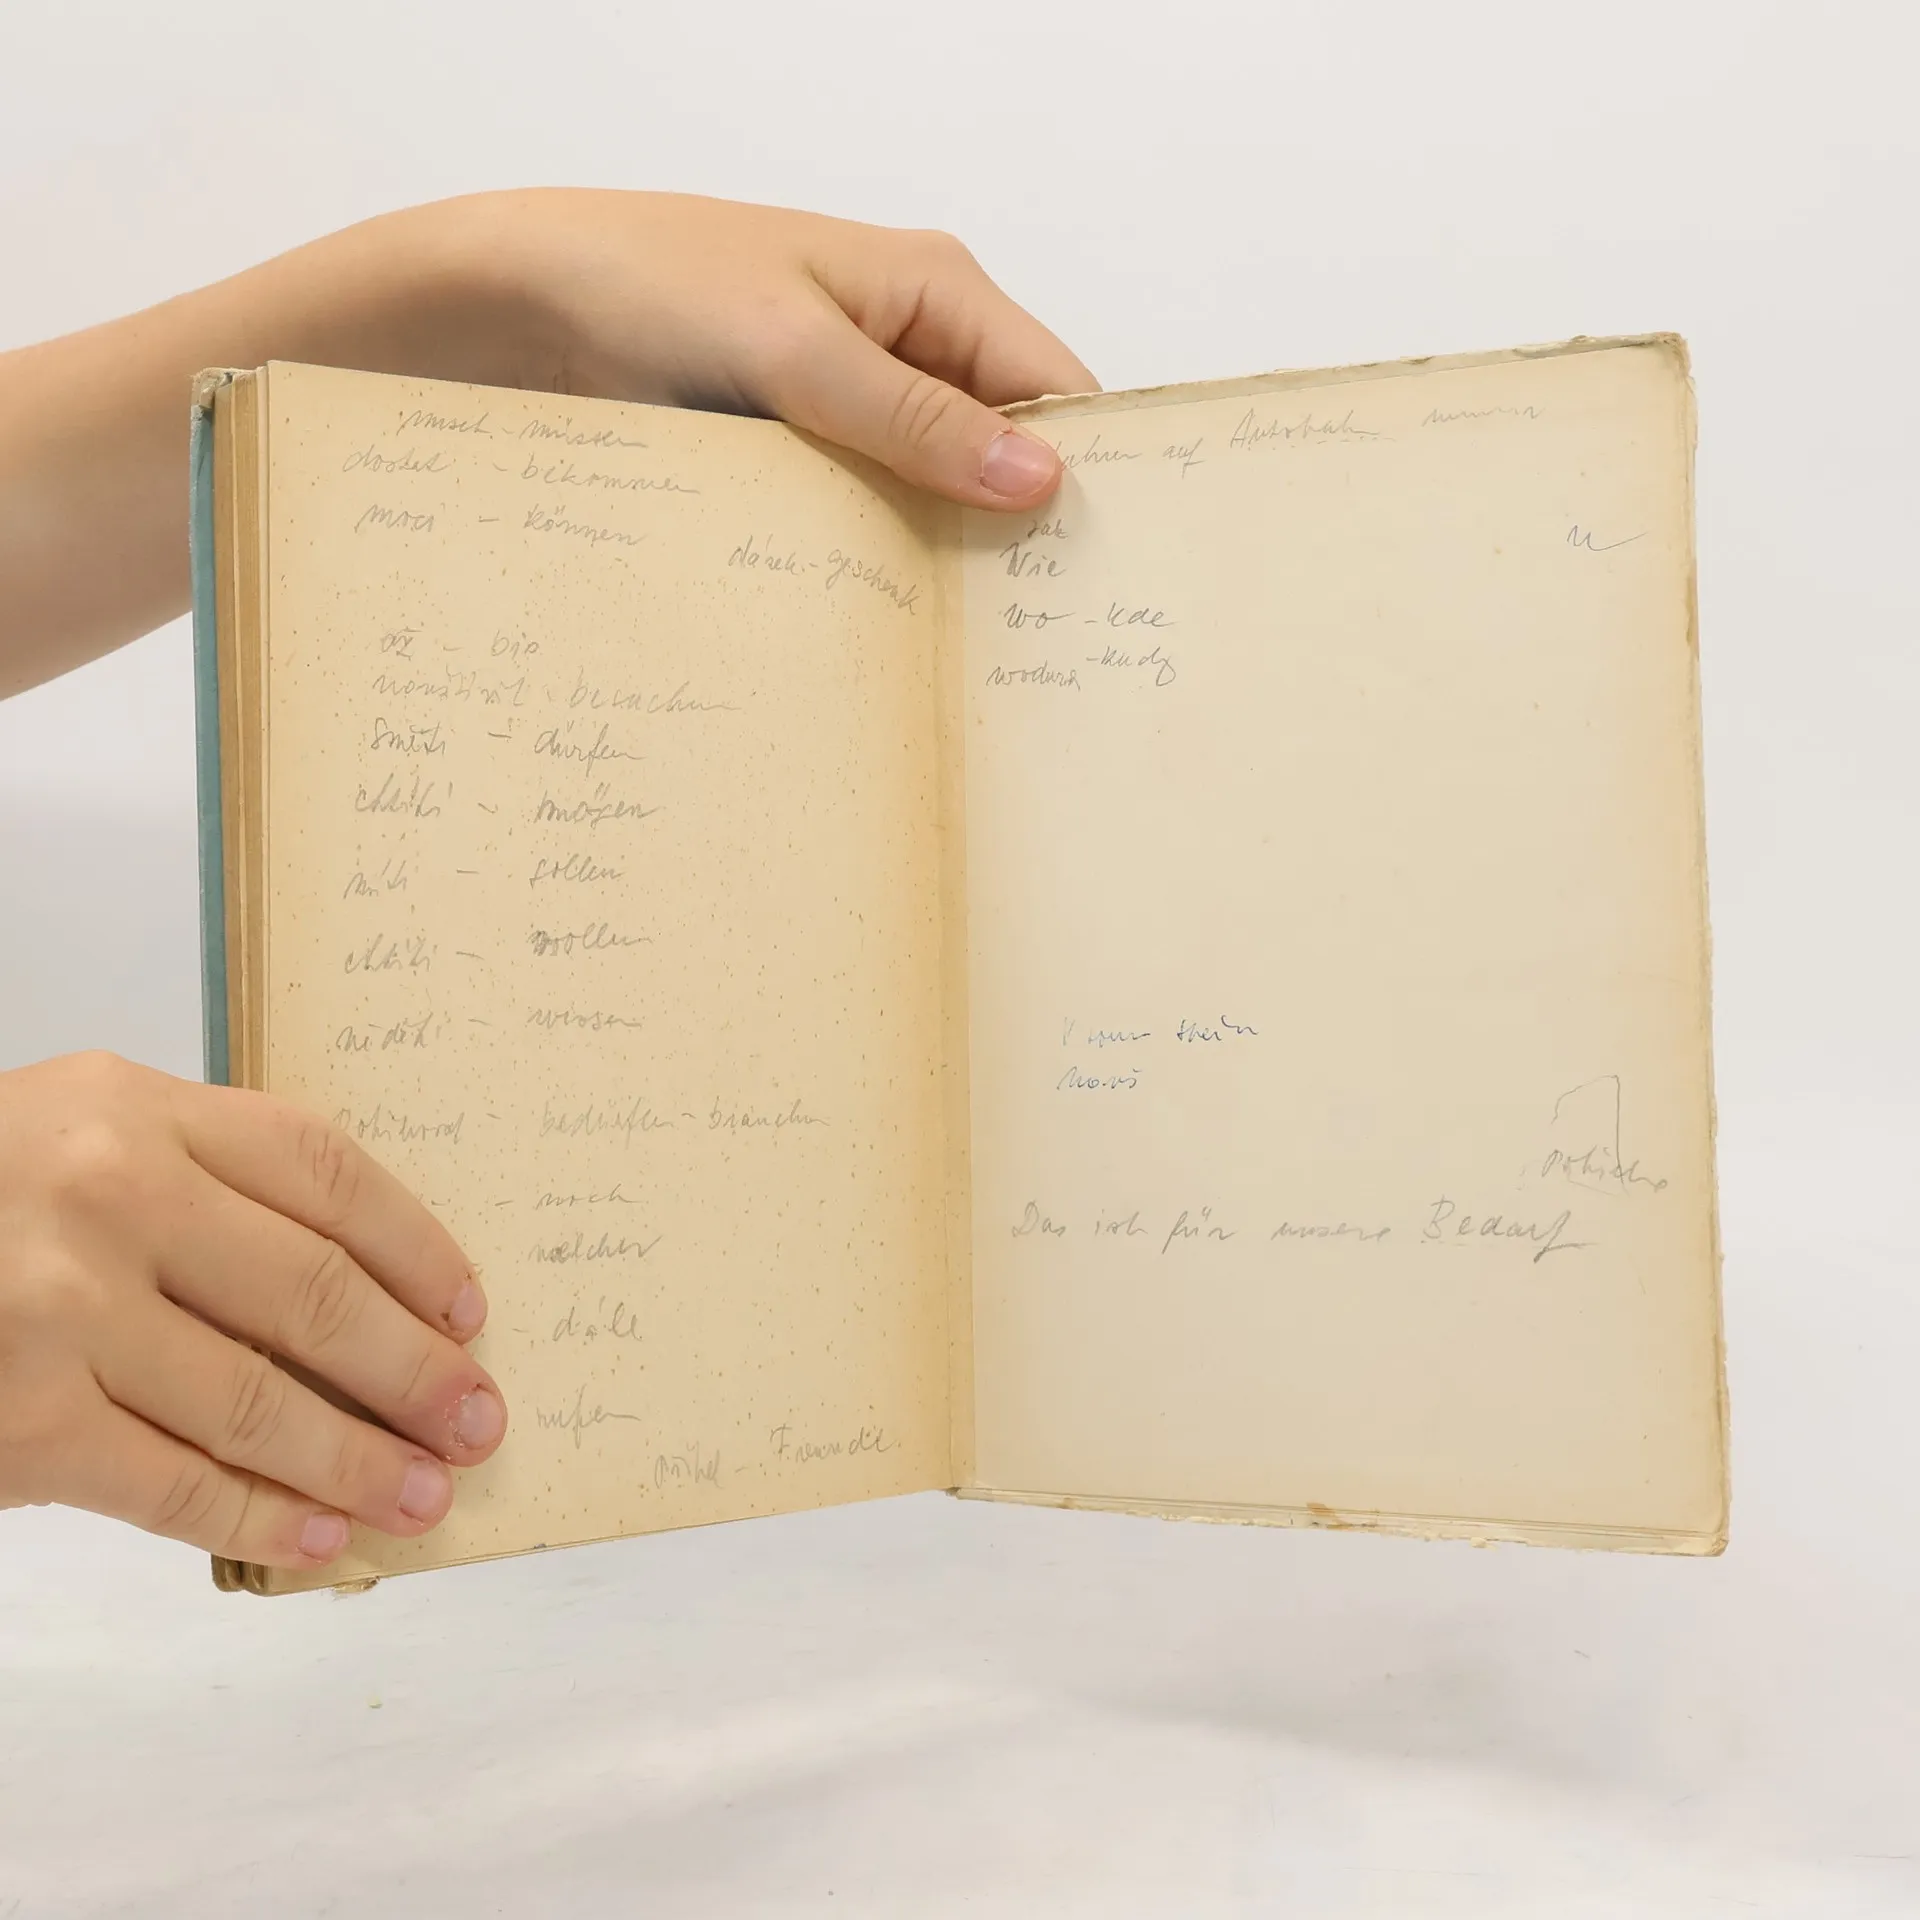 muset - müssen
dostat - bekommen
moci - können
dárek - geschenk
až - bis
navštívit - besuchen
směti - dürfen
chtíti - mögen
míti - sollen
chtíti - wollen
věděti - wissen
potřebovat - bedürfen - brauchen
- noch
welcher
- dále
rufen
přítel - Freunde
fahren auf Autobahn
jak
Wie
wo - kde
kudy
Das ist für unsere Bedarf